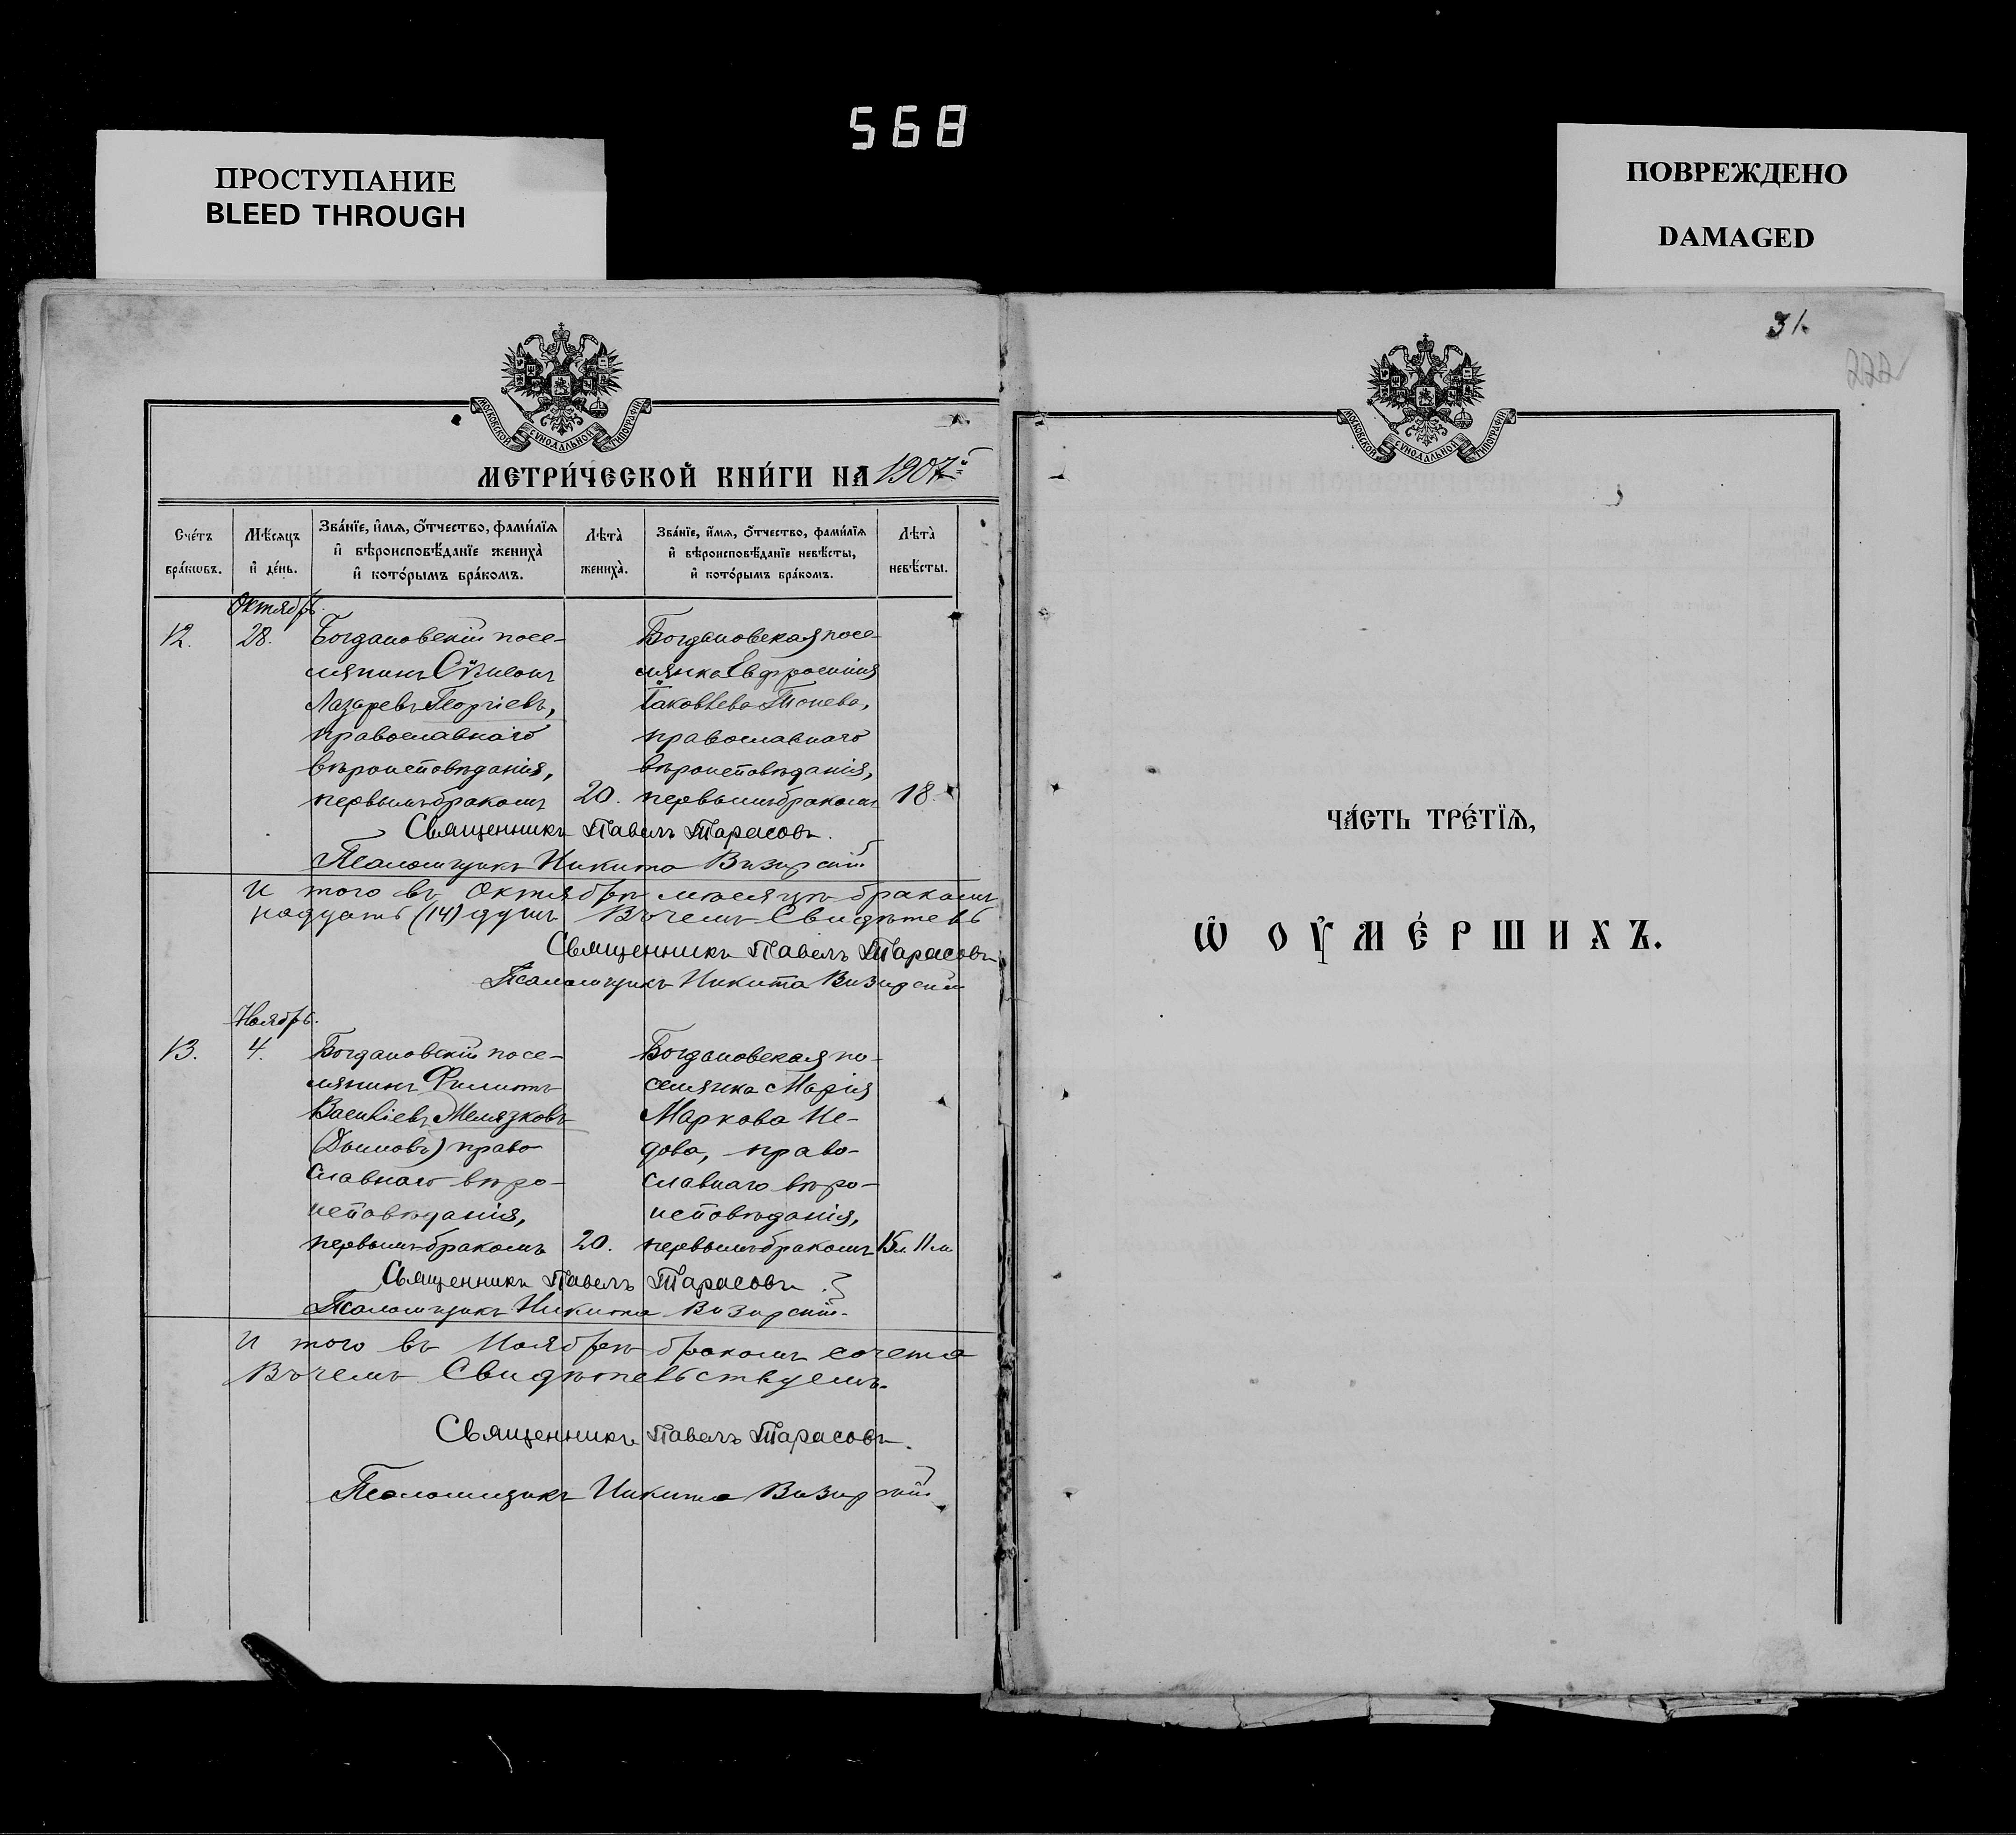 568
ПРОСТУПАНИЕ
BLEED THROUGH
ПОВРЕЖДЕНО
DAMAGED
31.
222
МОСКОВСКОЙ СѴНОДАЛЬНОЙ ТИПОГРАФІИ
МЕТРИ́ЧЕСКОЙ КНИ́ГИ НА 1907й
Сче́тъ бра́кѡвъ.
Мѣ́сяцъ и҆ де́нь.
Зва́нїе, и҆́мѧ, о҆́тчество, фами́лїѧ и҆ вѣроисповѣ́данїе жениха̀ и҆ кото́рымъ бра́комъ.
Лѣта̀ жениха̀.
Зва́нїе, и҆́мѧ, о҆́тчество, фами́лїѧ и҆ вѣроисповѣ́данїе невѣ́сты, и҆ кото́рымъ бра́комъ.
Лѣта̀ невѣ́сты.
Октябрь.
12.
28.
Богдановскій посе-
лянинъ Сѵмеонъ
Лазаревъ Георгіевъ,
православнаго
вѣроисповѣданія,
первымъ бракомъ
20.
Богдановская посе-
лянка Евфросинія
Іаковлева Тонева,
православнаго
вѣроисповѣданія,
первымъ бракомъ
18.
Священникъ Павелъ Тарасовъ.
Псаломщикъ Никита Визирскій
И того въ Октябрѣ мѣсяцѣ бракомъ
надцать (14) душъ Въ чемъ Свидѣтель
Священникъ Павелъ Тарасовъ
Псаломщикъ Никита Визирскій
Ноябрь.
13.
4.
Богдановскій посе-
лянинъ Филиппъ
Василіевъ Мелязковъ
православ
славнаго вѣро-
исповѣданія,
первымъ бракомъ
20.
Богдановская по-
селянка Марія
Маркова Не-
дова, право-
славнаго вѣро-
исповѣданія,
первымъ бракомъ
15 л. 11 м.
Священникъ Павелъ Тарасовъ.
Псаломщикъ Никита Визирскій.
И того въ Ноябрѣ бракомъ сочета
Въ чемъ Свидѣтельствуемъ.
Священникъ Павелъ Тарасовъ.
Псаломщикъ Никита Визирскій
МОСКОВСКОЙ СѴНОДАЛЬНОЙ ТИПОГРАФІИ
ЧА́СТЬ ТРЕ́ТЇѦ,
Ѡ҆ ОУ҆МЕ́РШИХЪ.